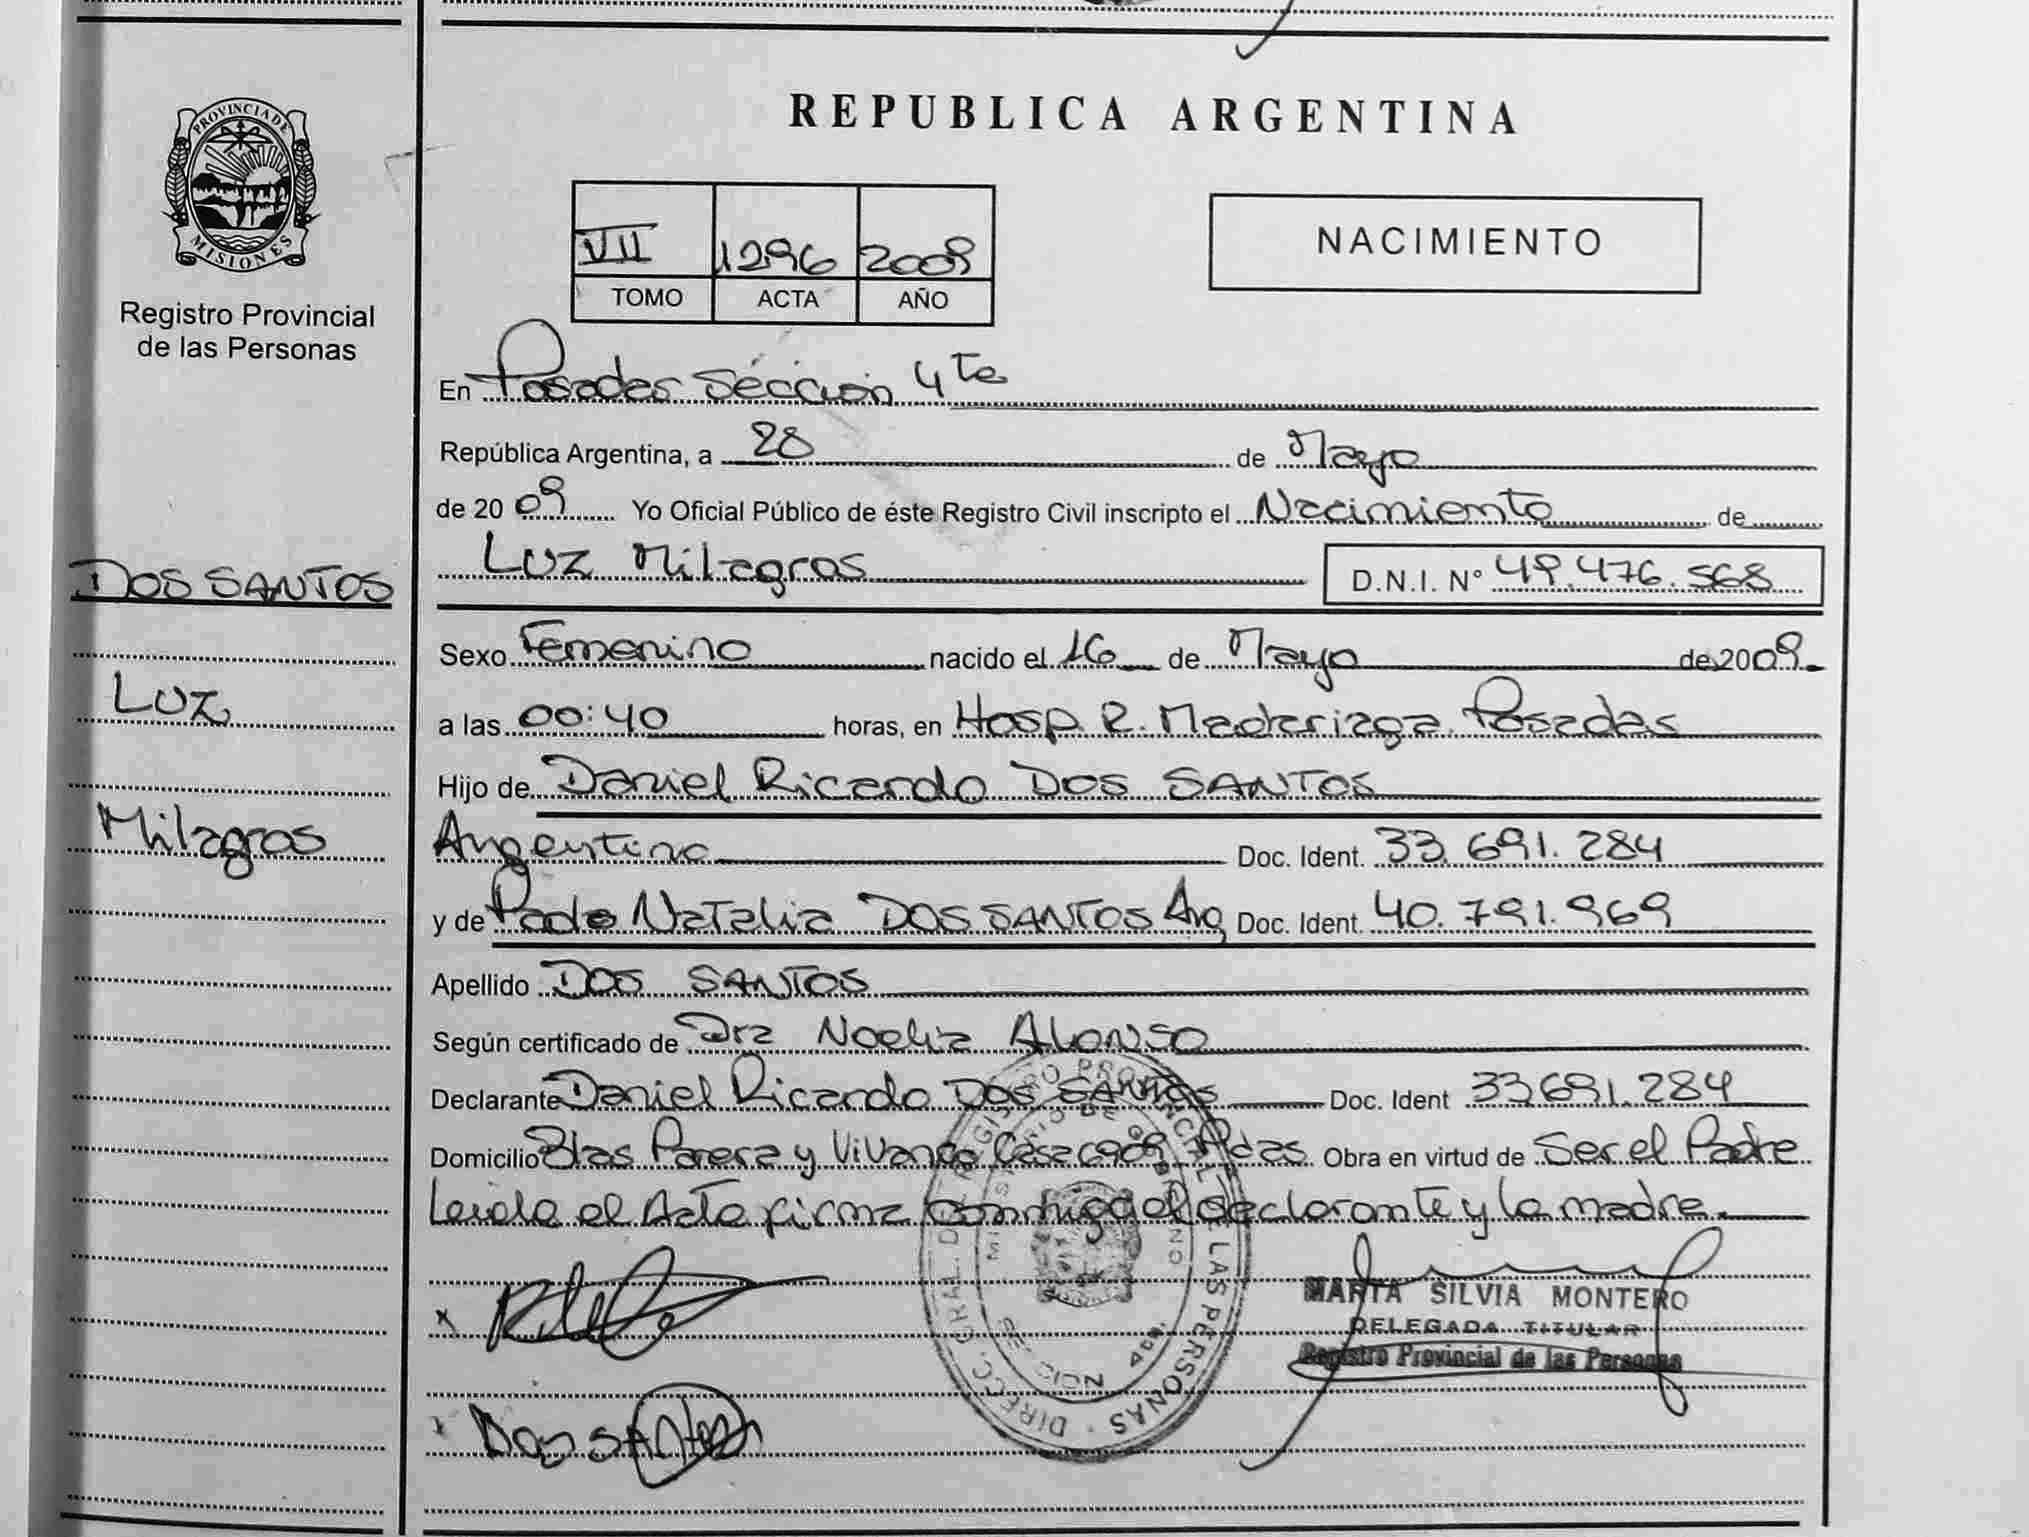 PROVINCIA DE
MISIONES
Registro Provincial
de las Personas
DOS SANTOS
Luz
Milagros
REPUBLICA ARGENTINA
VII 1296 2009
TOMO ACTA AÑO
NACIMIENTO
En Posadas Sección 4ta
República Argentina, a 28 de Mayo
de 2009 Yo Oficial Público de éste Registro Civil inscripto el Nacimiento de
Luz Milagros D.N.I. N° 49.476.568
Sexo Femenino nacido el 16 de Mayo de 2009
a las 00:40 horas, en Hosp. R. Madariaga. Posadas
Hijo de Daniel Ricardo DOS SANTOS
Argentino Doc. Ident. 33.691.284
y de Natalia DOS SANTOS Arg Doc. Ident. 40.791.969
Apellido DOS SANTOS
Según certificado de Dra Noelia Alonso
Declarante Daniel Ricardo DOS SANTOS Doc. Ident 33691.284
Domicilio Blas Parera y Vivanco Casa Pdas. Obra en virtud de Ser el Padre
Leida el Acta firma conmigo el declarante y la madre.
DIRECC. GRAL. DEL REGISTRO PROVINCIAL DE LAS PERSONAS
MINISTERIO DE GOBIERNO
MARTA SILVIA MONTERO
DELEGADA TITULAR
Registro Provincial de las Personas
Dos SANTOS